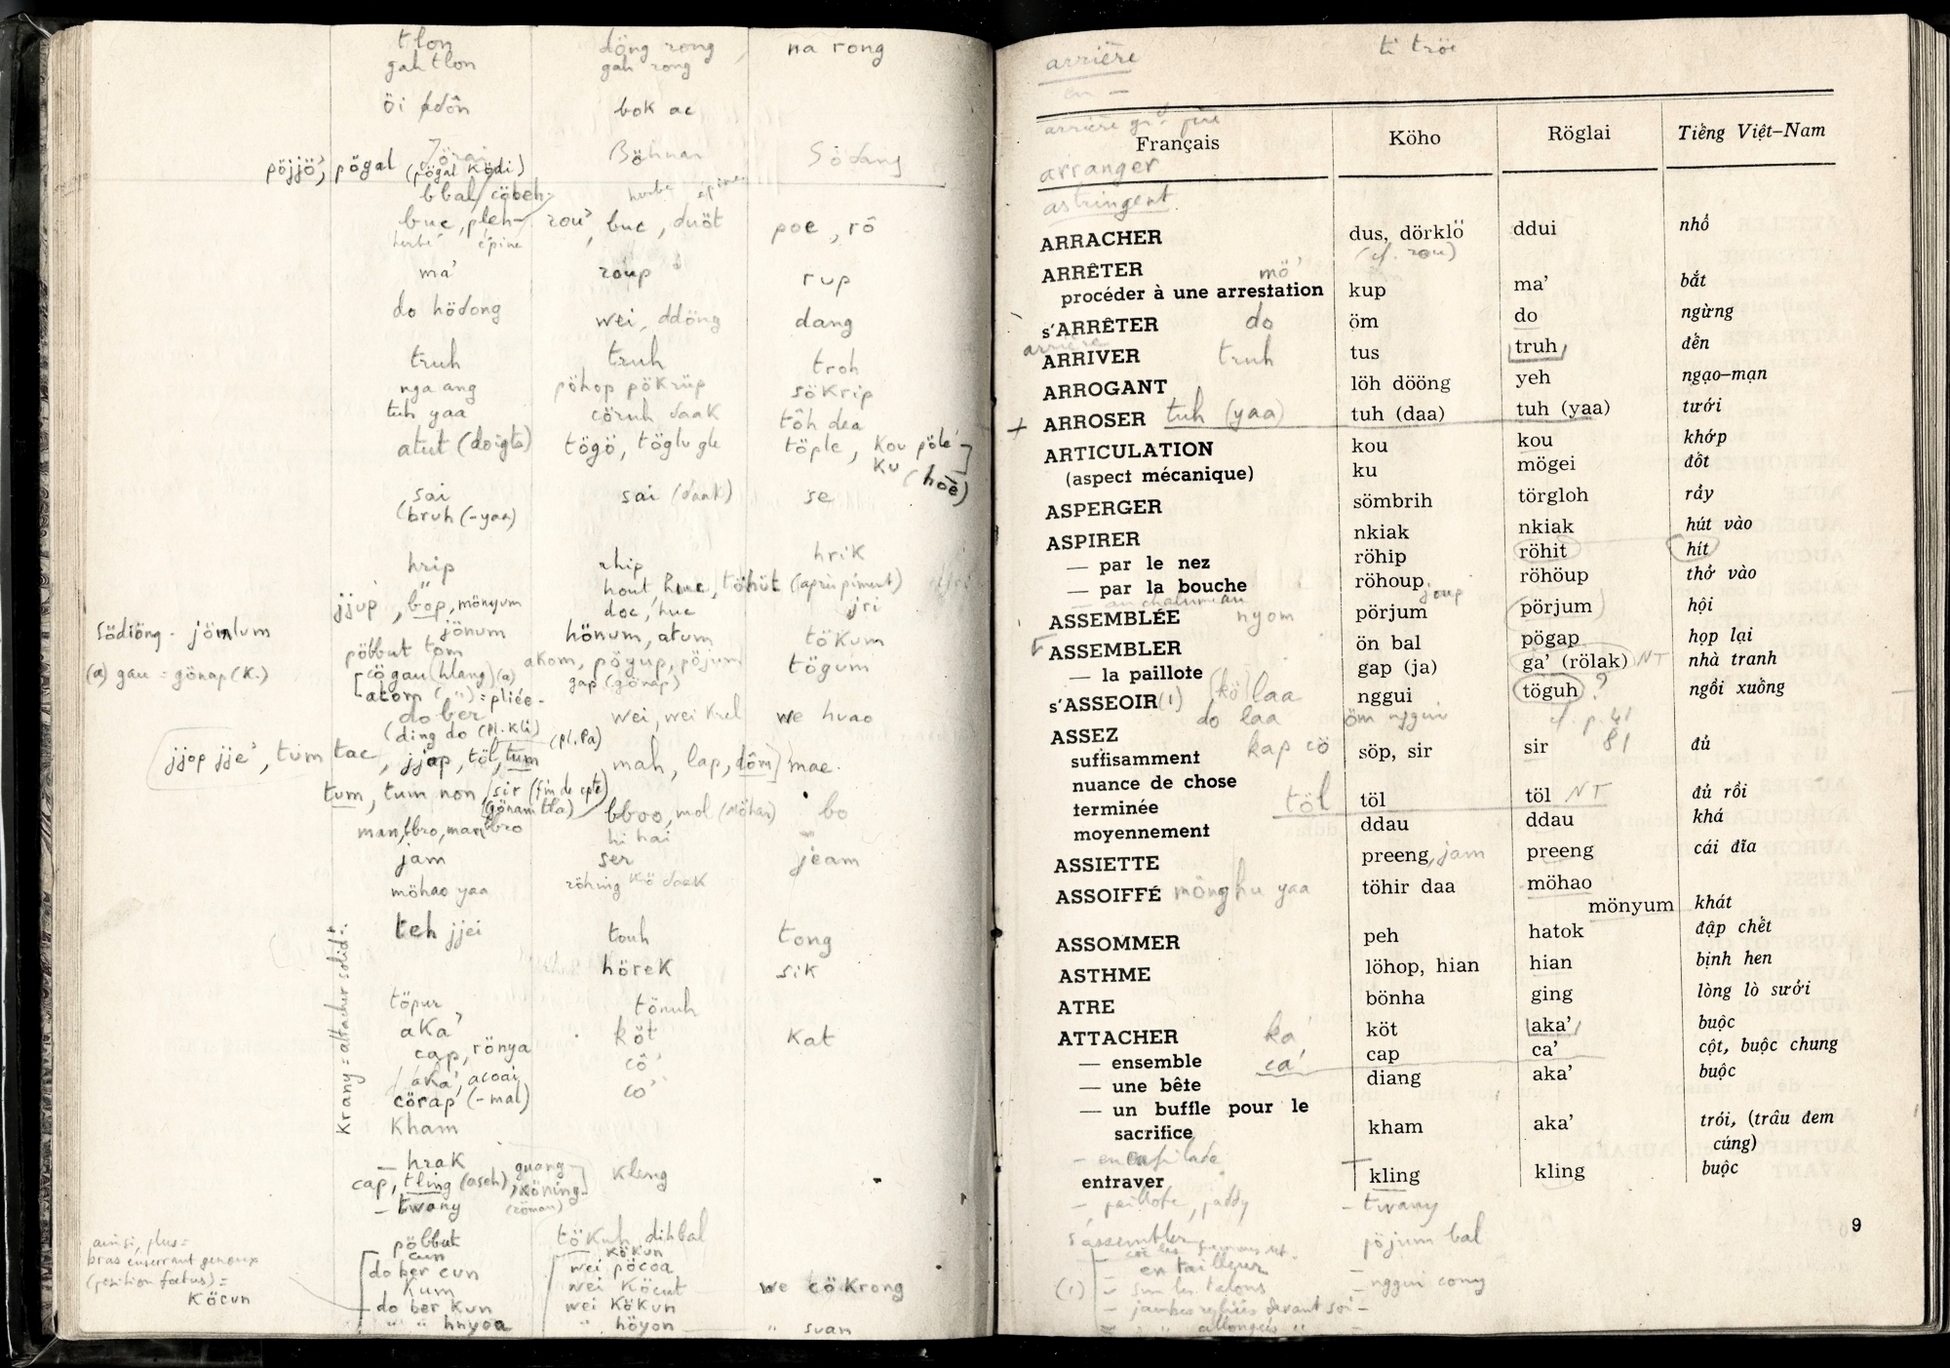 tlon döng rong na rong
gah tlon gah rong
öi pdôn bok ac
Jörai Böhnar Södang
pöjjö', pögal (pögal Ködi)
bbal cöbeh herbe épine
buc, pleh rou', buc, duöt poe, rô
herbe épine
ma' röup rup
do hödong wei, ddöng dang
truh truh troh
nga ang pöhop pökrüp sökrip
tuh yaa cöruh daak tôh dea
atut (doigts) tögö, töglugle töple, kou pöle
ku (hoê)
sai sai (daak) se
(bruh (-yaa)
hrip rhip hrik
hout huc, töhüt (après piment)
jjup, böp, mönyum doc, huc jri
södiöng - jömlum jönum hönum, atum tökum
pöbbut tom akom, pögup, pöjum tögum
(a) gau = gönap (K.) cögau (hlang) (a) gap (gönap)
atom (") = pliée
do ber wei, wei krel we huao
(ding do (pl. kli) (pl. Pa)
jjop jje', tum tac, jjap, töl, tum mah, lap, dôm mae
tum, tum non, sir (fin de cpte) bboo, mol (möhar) bo
(gönam tla)
man, bro, man bro hi hai
jam ser jeam
möhao yaa röhing kö daak
teh jjei touh tong
hörek sik
töpur tönuh
aka' köt kat
cap, rönya cô'
aka', acoai co'
cörap (-mal)
Krany = attacher solidt.
kham
— hrak guang
cap, tling (aseh), köning kleng
— twany (röman)
pöbbut tökuh, dihbal
ainsi, plus =
bras enserrant genoux
(position foetus) =
Köcun
cun kökun
do ber cun wei pöcoa
hum wei Köcut we cökrong
do ber kun wei Kökun
" " hnyoa " höyon " suan
arrière ti tröi
en —
arrière gr. père
Français Köho Röglai Tiếng Việt–Nam
arranger
astringent
ARRACHER dus, dörklö ddui nhổ
(cf. rou)
ARRÊTER mö'
procéder à une arrestation kup ma' bắt
s'ARRÊTER do öm do ngừng
arrière
ARRIVER truh tus truh đến
ARROGANT löh dööng yeh ngạo–mạn
+ ARROSER tuh (yaa) tuh (daa) tuh (yaa) tưới
ARTICULATION kou kou khớp
(aspect mécanique) ku mögei đốt
ASPERGER sömbrih törgloh rảy
ASPIRER nkiak nkiak hút vào
— par le nez röhip röhit hít
— par la bouche röhoup röhöup thở vào
— au chalumeau joup
ASSEMBLÉE nyom pörjum pörjum hội
ASSEMBLER ön bal pögap họp lại
— la paillote gap (ja) ga' (rölak) NT nhà tranh
s'ASSEOIR (1) (kö) laa nggui töguh ? ngồi xuống
do laa öm nggui cf. p. 41
ASSEZ 81
suffisamment kap cö söp, sir sir đủ
nuance de chose
terminée töl töl töl NT đủ rồi
moyennement ddau ddau khá
ASSIETTE preeng, jam preeng cái đĩa
ASSOIFFÉ mönghu yaa töhir daa möhao
mönyum khát
ASSOMMER peh hatok đập chết
ASTHME löhop, hian hian bịnh hen
ATRE bönha ging lòng lò sưởi
ATTACHER ka' köt aka' buộc
— ensemble ca' cap ca' cột, buộc chung
— une bête diang aka' buộc
— un buffle pour le
sacrifice kham aka' trói, (trâu đem
cúng)
— en enfilade
entraver kling kling buộc
— paillote, paddy - twany
9
s'assembler pöjum bal
en tailleur
(1) — sur les talons — nggui cony
— jambes repliées devant soi —
— " allongées "